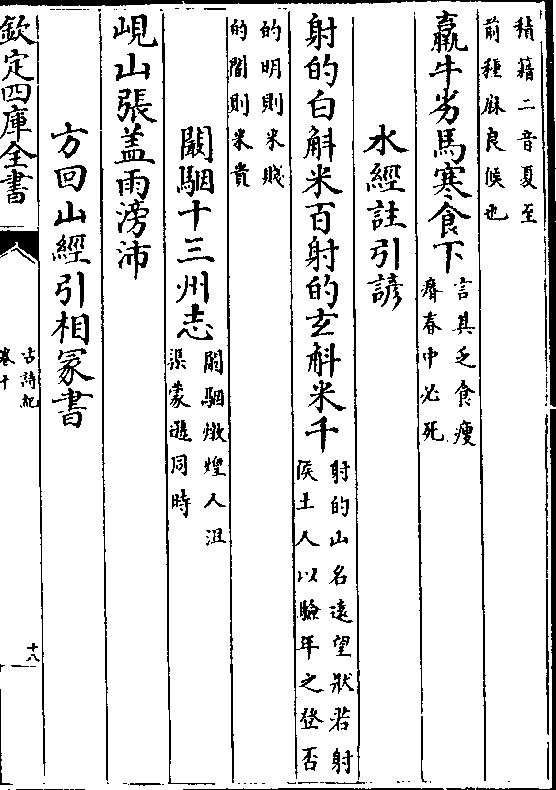 穊籍二音夏至
前種麻良候也
羸牛劣馬寒食下言其乏食瘦
瘠春中必死
水經註引諺
射的白斛米百射的玄斛米千射的山名遠望狀若射
侯土人以驗年之登否
的明則米賤
的闇則米貴
闞駰十三州志闞駰燉煌人沮
渠蒙遜同時
峴山張盖雨滂沛
方回山經引相冢書
欽定四庫全書
古詩紀
卷十
十八